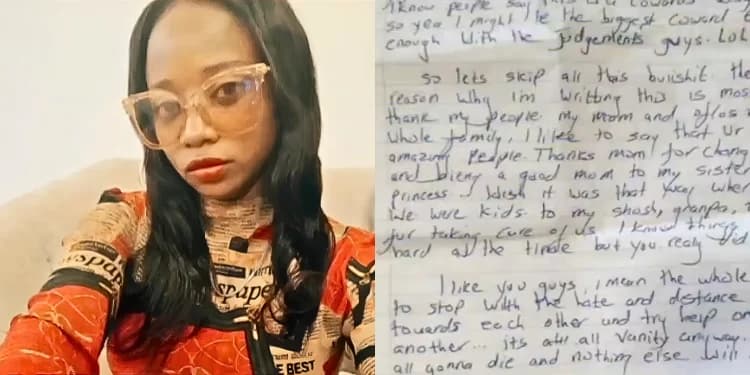 newspap
spape
E BEST
I know people say this is a cowards
so yea I might be the biggest coward
enough with the judgements guys. LoL
So lets skip all this bullshit. the
reason why I'm writting this is mos
thank my people. my mom and
whole family, I like to say that ur
amazing people. Thanks mom for chang
and bieng a good mom to my sister
princess. I wish it was that way when
We were kids to my granpa,
fur taking care of us. I know things
hard at the time but you realy did
I like you guys, I mean the whole
to stop with the hate and distance
towards each other und try help on
another... its all vanity anyway.
all gonna die and nothing else will